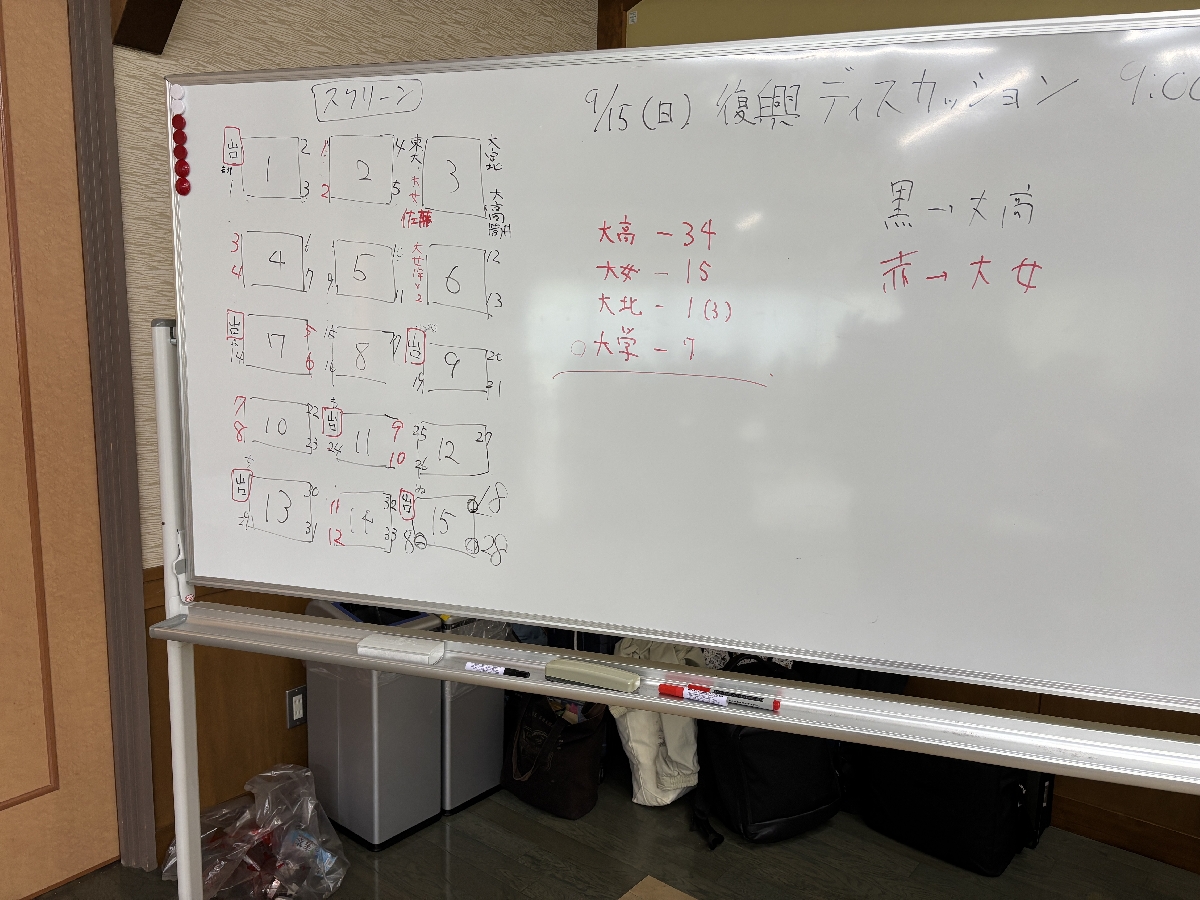 9/15(日) 復興ディスカッション 9:00
スクリーン
台 1 2 3 1
1 2 2 4 5
東大 大女 佐藤 3 大北 大高
3 4 4 7
5 11
大女 6 12 13
台 7 14 5 6
8 17
台 9 19 20 21
7 8 10 22 23
台 11 24 9 10
12 25 26 27
台 13 29 30 31
11 12 14 32 33
台 15 8 18 28
大高 - 34
大女 - 15
大北 - 1(3)
大学 - 7
黒→大高
赤→大女